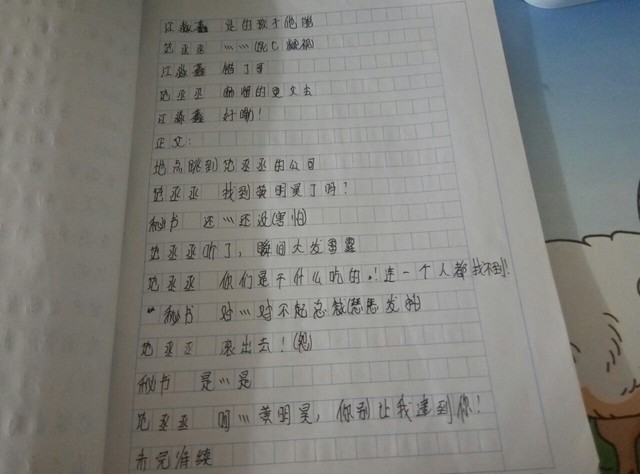 江淼鑫 是的孩子他娘
范丞丞 …… (死亡凝视)
江淼鑫 错了哥
范丞丞 麻溜的更文去
江淼鑫 好嘞!
正文:
地点跳到范丞丞的公司
范丞丞 找到黄明昊了吗?
秘书 还……还没(害怕)
范丞丞听了,瞬间大发雷霆
范丞丞 你们是干什么吃的!连一个人都找不到!
秘书 对……对不起总裁(瑟瑟发抖)
范丞丞 滚出去!
秘书 是……是
范丞丞 呵……黄明昊,你别让我逮到你!
未完待续